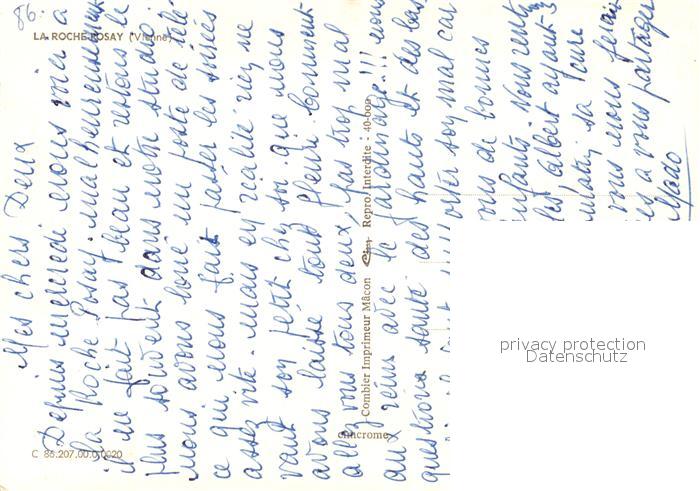 86.
LA ROCHE-POSAY (Vienne)
Mes chers Deux
Depuis mercredi nous voici à
la Roche Posay. malheureusement
il ne fait pas beau et restons le
plus souvent dans notre studio.
nous avons loué un poste de télé
ce qui nous fait passer les soirées
assez vite. mais en réalité rien ne
vaut son petit chez soi que nous
avons laissé tout fleuri. Comment
allez vous tous deux, pas trop mal
aux reins avec le jardinage!!! nous
questions santé des hauts et des bas
porter son mal car
vous de bonnes
enfants. nous
les Albert ayant
matin sa
vous nous
à vous partage
Mado
Combier Imprimeur Mâcon Repro. Interdite - 40-600
cimcrome
C 86.207.00.0.0020
privacy protection
Datenschutz